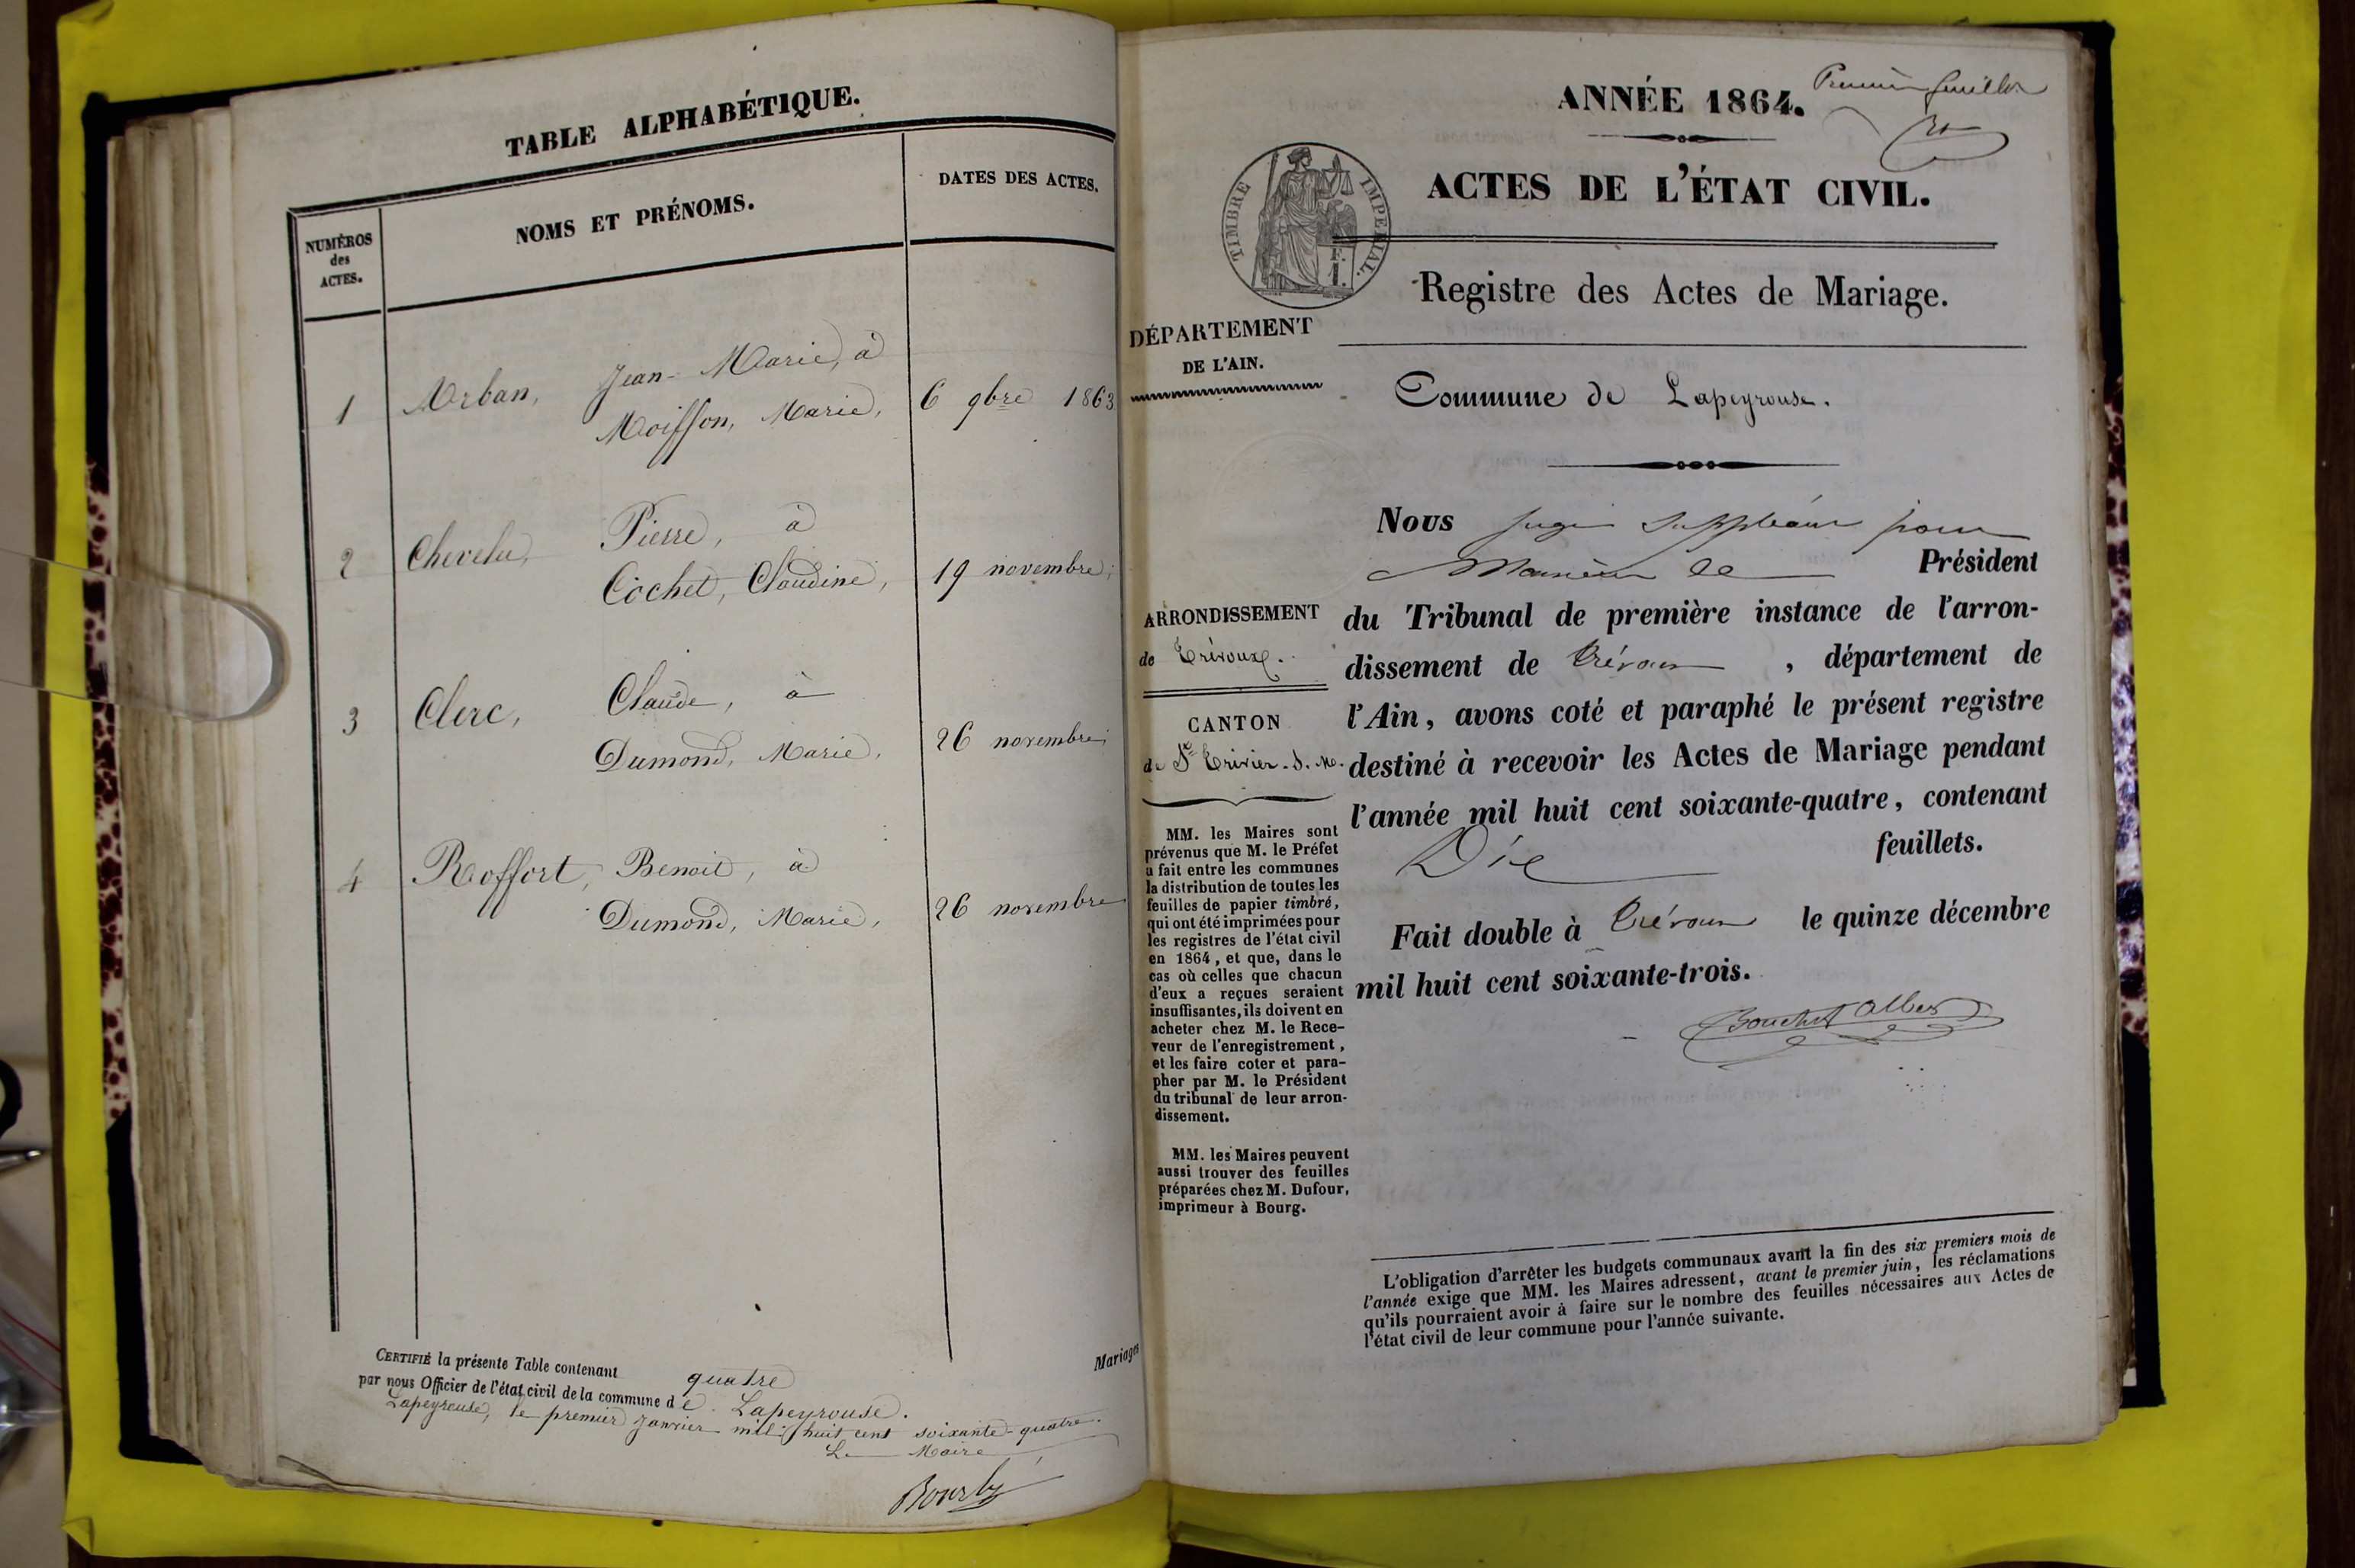 TABLE ALPHABÉTIQUE.
NUMÉROS
des
ACTES.
NOMS ET PRÉNOMS.
DATES DES ACTES.
1 Urban, Jean-Marie, à
Moisson, Marie, 6 9bre 1863
2 Chevelu, Pierre, à
Cochet, Claudine, 19 novembre;
3 Clerc, Claude, à
Dumond, Marie, 26 novembre;
4 Roffort, Benoit, à
Dumond, Marie, 26 novembre
CERTIFIÉ la présente Table contenant quatre
par nous Officier de l'état civil de la commune de Lapeyrouse.
Lapeyrouse, le premier janvier mil huit cent soixante-quatre.
Le Maire,
Mariages
Premier feuillet
ANNÉE 1864.
ACTES DE L'ÉTAT CIVIL.
TIMBRE IMPÉRIAL.
F.
1.
Registre des Actes de Mariage.
DÉPARTEMENT
DE L'AIN.
Commune de Lapeyrouse.
ARRONDISSEMENT
de Trévoux.
CANTON
de St Trivier-s.M.
MM. les Maires sont
prévenus que M. le Préfet
a fait entre les communes
la distribution de toutes les
feuilles de papier timbré,
qui ont été imprimées pour
les registres de l'état civil
en 1864, et que, dans le
cas où celles que chacun
d'eux a reçues seraient
insuffisantes, ils doivent en
acheter chez M. le Rece-
veur de l'enregistrement,
et les faire coter et para-
pher par M. le Président
du tribunal de leur arron-
dissement.
MM. les Maires peuvent
aussi trouver des feuilles
préparées chez M. Dufour,
imprimeur à Bourg.
Nous juge suppléant pour
Monsieur le Président
du Tribunal de première instance de l'arron-
dissement de Trévoux, département de
l'Ain, avons coté et paraphé le présent registre
destiné à recevoir les Actes de Mariage pendant
l'année mil huit cent soixante-quatre, contenant
Dix feuillets.
Fait double à Trévoux le quinze décembre
mil huit cent soixante-trois.
L'obligation d'arrêter les budgets communaux avant la fin des six premiers mois de
l'année exige que MM. les Maires adressent, avant le premier juin, les réclamations
qu'ils pourraient avoir à faire sur le nombre des feuilles nécessaires aux Actes de
l'état civil de leur commune pour l'année suivante.